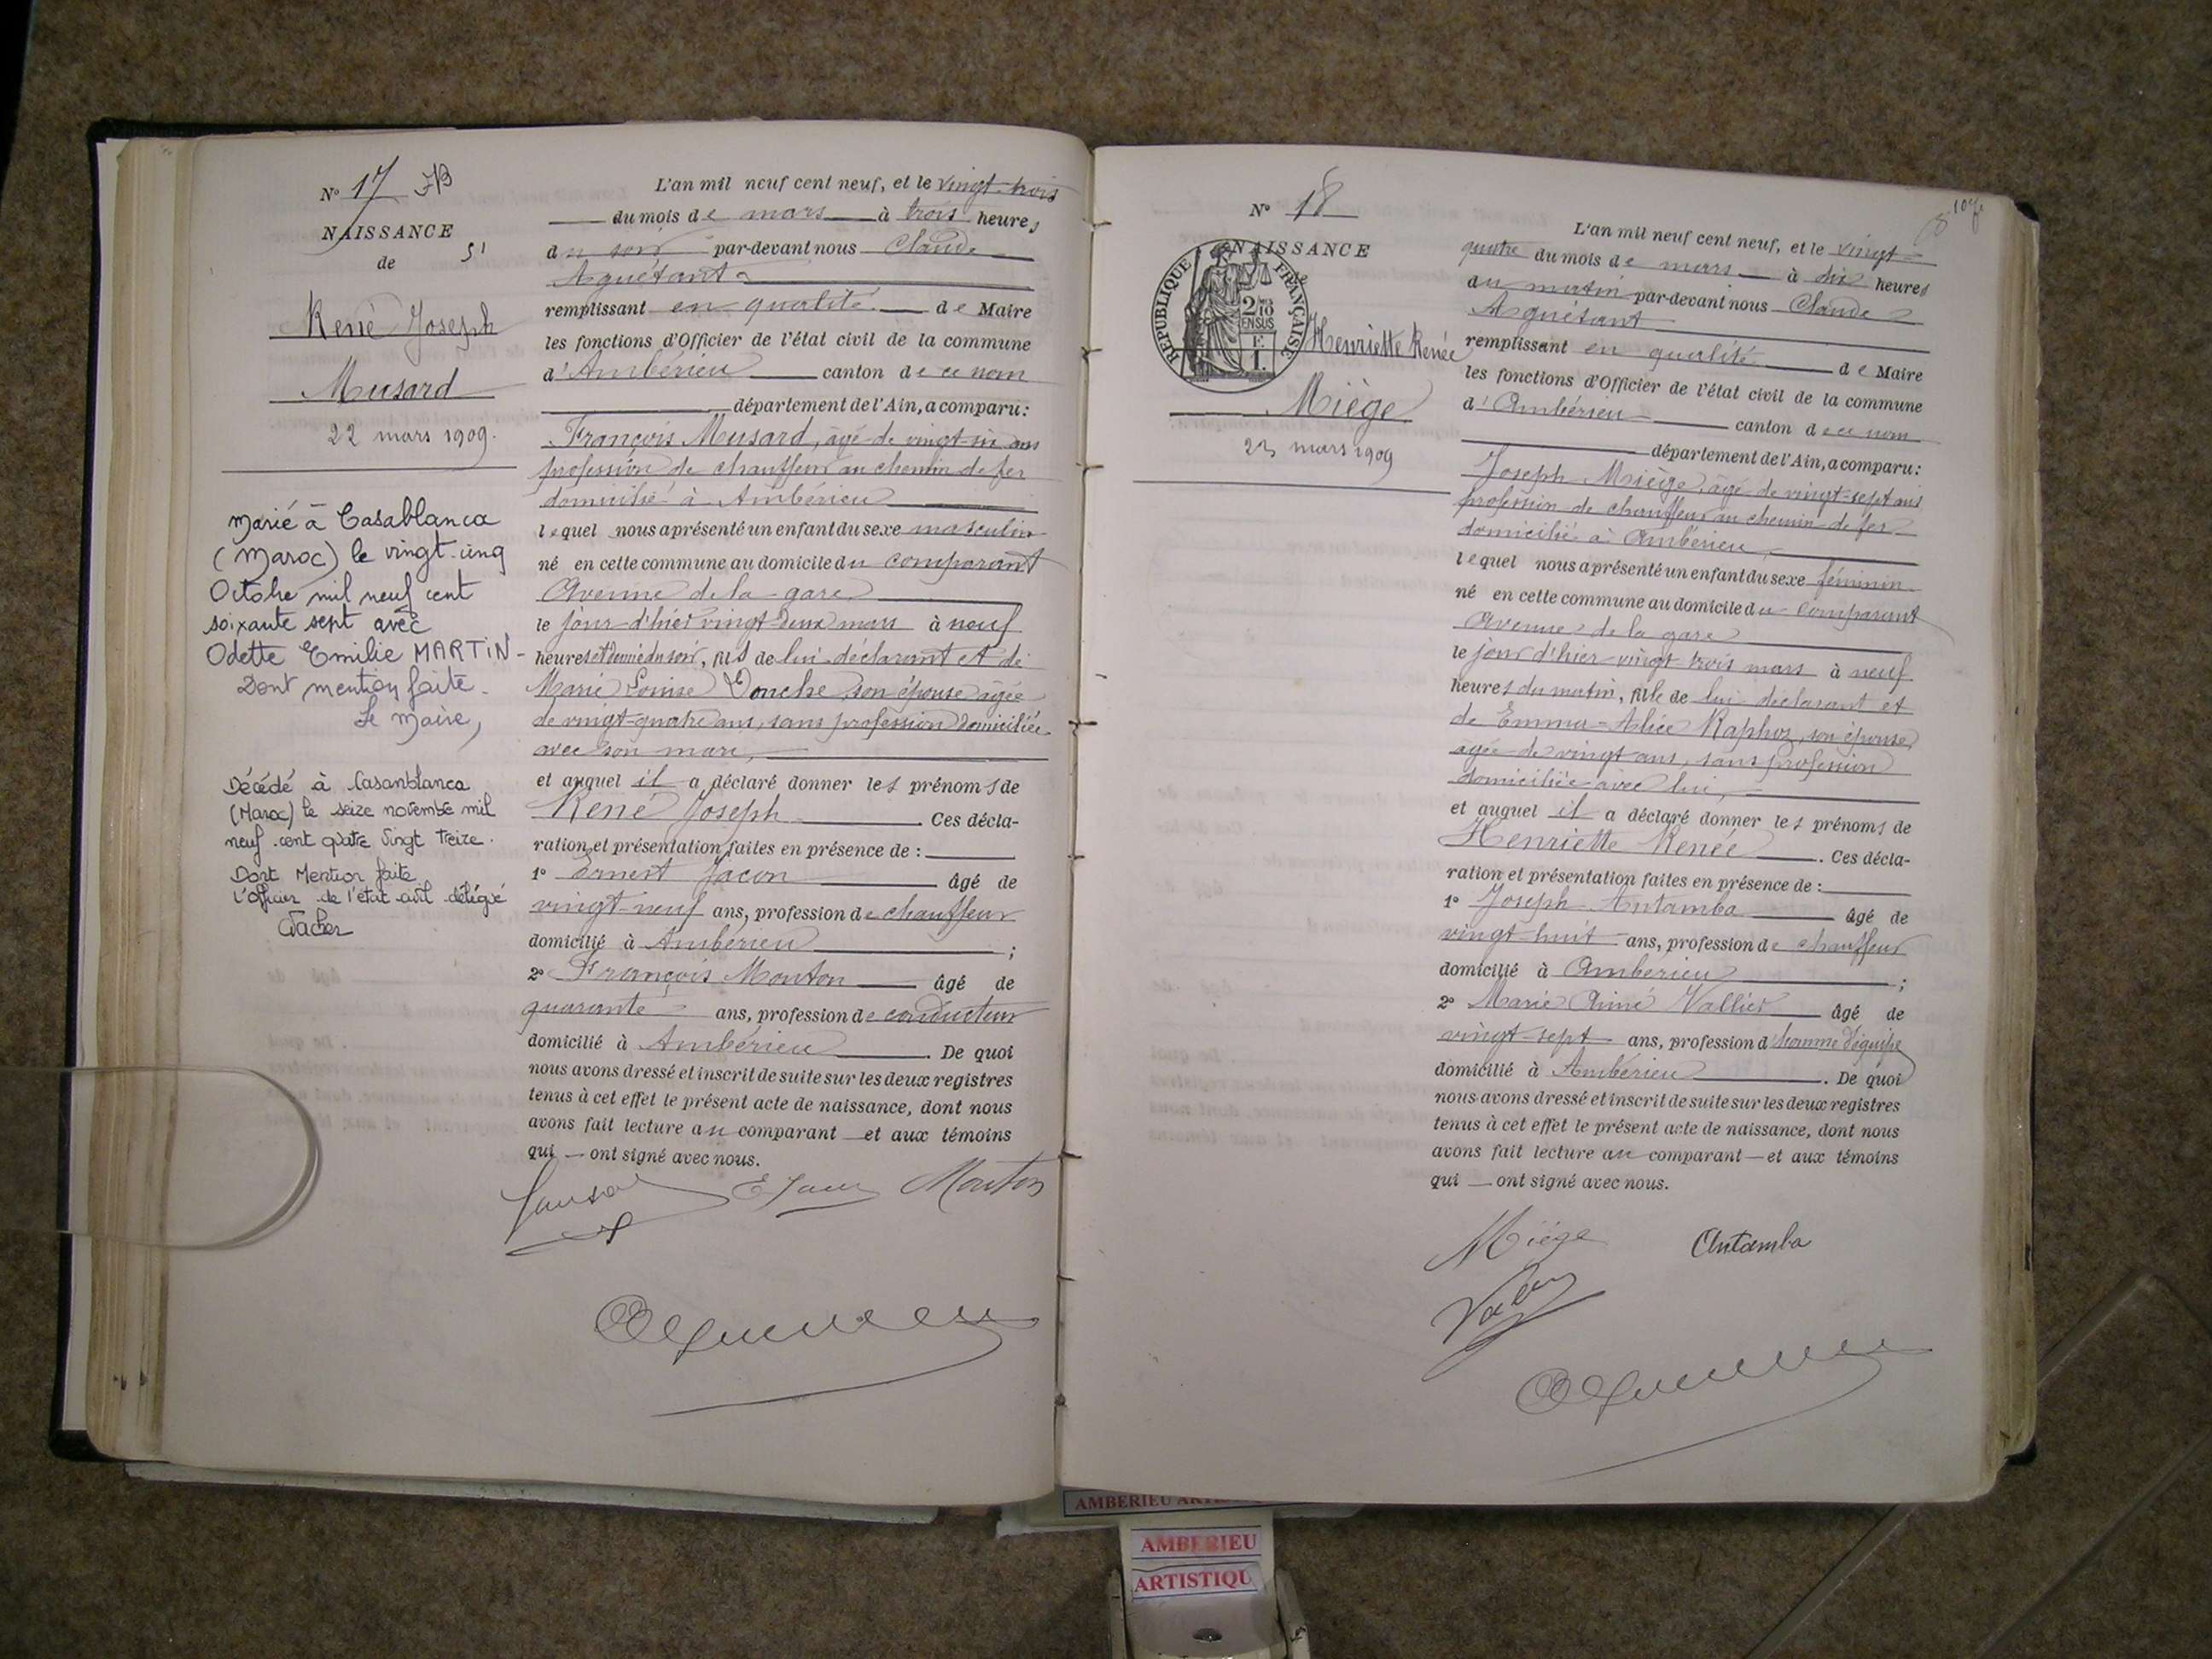 N° 17 JB
NAISSANCE
de
René Joseph
Musard
22 mars 1909.
Marié à Casablanca
(Maroc) le vingt-cinq
Octobre mil neuf cent
soixante sept avec
Odette Emilie MARTIN -
Dont mention faite.
Le Maire,
Décédé à Casanblanca
(Maroc) le seize novembre mil
neuf cent quatre vingt treize.
Dont Mention faite
L'officier de l'état civil délégué
L'an mil neuf cent neuf, et le vingt-trois
du mois de mars à trois heures
du soir par-devant nous Claude
Aguétant
remplissant en qualité de Maire
les fonctions d'Officier de l'état civil de la commune
d'Ambérieu canton de ce nom
département de l'Ain, a comparu:
François Musard, âgé de vingt-six ans
profession de chauffeur au chemin de fer
domicilié à Ambérieu
lequel nous a présenté un enfant du sexe masculin
né en cette commune au domicile du comparant
Avenue de la gare
le jour d'hier vingt-deux mars à neuf
heures et demie du soir, fils de lui déclarant et de
Marie Louise Donche, son épouse âgée
de vingt-quatre ans, sans profession domiciliée
avec son mari,
et auquel il a déclaré donner les prénoms de
René Joseph Ces décla-
ration et présentation faites en présence de :
1° Ernest Jacon âgé de
vingt-neuf ans, profession de chauffeur
domicilié à Ambérieu ;
2° François Mouton âgé de
quarante ans, profession de conducteur
domicilié à Ambérieu . De quoi
nous avons dressé et inscrit de suite sur les deux registres
tenus à cet effet le présent acte de naissance, dont nous
avons fait lecture au comparant et aux témoins
qui ont signé avec nous.
Mouton
N° 18
NAISSANCE
RÉPUBLIQUE FRANÇAISE
2/10 EN SUS
F. 1.
Henriette Renée
Miège
23 mars 1909
L'an mil neuf cent neuf, et le vingt-
quatre du mois de mars à dix heures
du matin par-devant nous Claude
Aguétant
remplissant en qualité de Maire
les fonctions d'Officier de l'état civil de la commune
d'Ambérieu canton de ce nom
département de l'Ain, a comparu:
Joseph Miège, âgé de vingt-sept ans
profession de chauffeur au chemin de fer
domicilié à Ambérieu,
lequel nous a présenté un enfant du sexe féminin
né en cette commune au domicile du comparant
Avenue de la gare
le jour d'hier vingt trois mars à neuf
heures du matin, fille de lui déclarant et
de Emma-Alice Raphoz, son épouse,
âgée de vingt ans, sans profession
domiciliée avec lui,
et auquel il a déclaré donner les prénoms de
Henriette Renée . Ces décla-
ration et présentation faites en présence de :
1° Joseph Antamba âgé de
vingt-huit ans, profession de chauffeur
domicilié à Ambérieu ;
2° Marie Aimé Vallier âgé de
vingt-sept ans, profession d'homme d'équipe
domicilié à Ambérieu . De quoi
nous avons dressé et inscrit de suite sur les deux registres
tenus à cet effet le présent acte de naissance, dont nous
avons fait lecture au comparant et aux témoins
qui ont signé avec nous.
Miège Antamba
AMBERIEU
AMBERIEU
ARTISTIQU